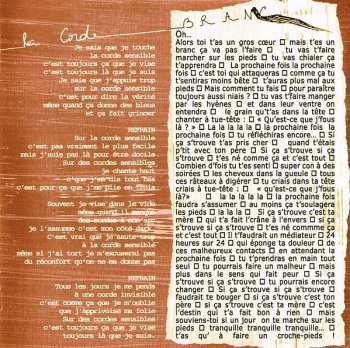 La Corde
Je sais que je touche
La corde sensible
c'est toujours là que je vise
c'est toujours là que je suis
Je sais que j'appuie trop
sur la corde sensible
c'est pour dire la vérité
même quand ça donne des bleus
et ça fait grincer
REFRAIN
Sur la corde sensible
c'est pas vraiment le plus facile
mais j'suis pas là pour être docile
Sur des cordes sensibles
je chante haut
c'est pour ça que je
Souvent je vise dans le vide
même quand il manque
des cordes à
je l'assomme c'est mon côté
C'est vrai que je
à la corde sensible
même si j'ai tort je m'excuserai pas
du réconfort qu'on ne me donne pas
REFRAIN
Tous les jours je me pends
à une corde invisible
c'est comme ça que je m'oublie
que j'apprivoise ma folie
Sur des cordes sensibles
c'est toujours ça que je vise
toujours là que je suis.
BRANC
Oh...
Alors toi t'as un gros cœur ☐ mais t'es un
branc ça va pas l'faire ☐ tu vas t'faire
marcher sur les pieds ☐ tu vas chialer ça
t'apprendra ☐ La prochaine fois la prochaine
fois ☐ c'est toi qui attaquera ☐ comme ça tu
t'sentiras moins bête ☐ t'auras plus mal aux
pieds ☐ Mais comment tu fais ☐ pour paraître
toujours aussi niais ? ☐ tu vas t'faire manger
par les hyènes ☐ et dans leur ventre on
entendra ☐ le grain qu't'as dans la tête ☐
chanter à tue-tête : ☐ « Qu'est-ce que j'fous
là ? » ☐ La la la la la ☐ la prochaine fois la
prochaine fois ☐ tu réfléchiras encore... ☐ Si
ça s'trouve t'as pris cher ☐ quand t'étais
p'tit avec ton père ☐ Si ça s'trouve si ça
s'trouve ☐ t'es né comme ça et c'est tout ☐
Combien d'fois tu t'es senti ☐ super con à des
soirées ☐ les cheveux dans la gueule ☐ tous
ces râteaux à digérer ☐ tu criais dans ta tête
criais à tue-tête : ☐ « qu'est-ce que j'fous
là? » ☐ La la la la la ☐ La prochaine fois
faudra s'assumer ☐ au moins ça t'soulagera
les pieds ☐ la la la ☐ Si ça s'trouve c'est ta
mère ☐ qui t'a fait l'crâne à l'envers ☐ si ça
s'trouve si ça s'trouve ☐ t'es né comme ça
et c'est tout ☐ Il t'faudrait un médiateur ☐ 24
heures sur 24 ☐ qui éponge ta douleur ☐ de
ces malheureux contacts ☐ en attendant la
prochaine fois ☐ tu t'prendras en main tout
seul ☐ tu pourrais faire un malheur ☐ mais
plus dans le sens qui fait peur ☐ Si ça
s'trouve si ça s'trouve ☐ tu pourrais encore
changer ☐ Si ça s'trouve si ça s'trouve ☐
faudrait te bouger ☐ si ça s'trouve c'est ton
père ☐ si ça s'trouve c'est ta mère ☐ c'est
l'destin qui t'a fait bon à rien ☐ mais
souviens-toi si un jour on te marche sur les
pieds ☐ tranquille tranquille tranquille... ☐
t'as qu' à faire un croche-pieds !